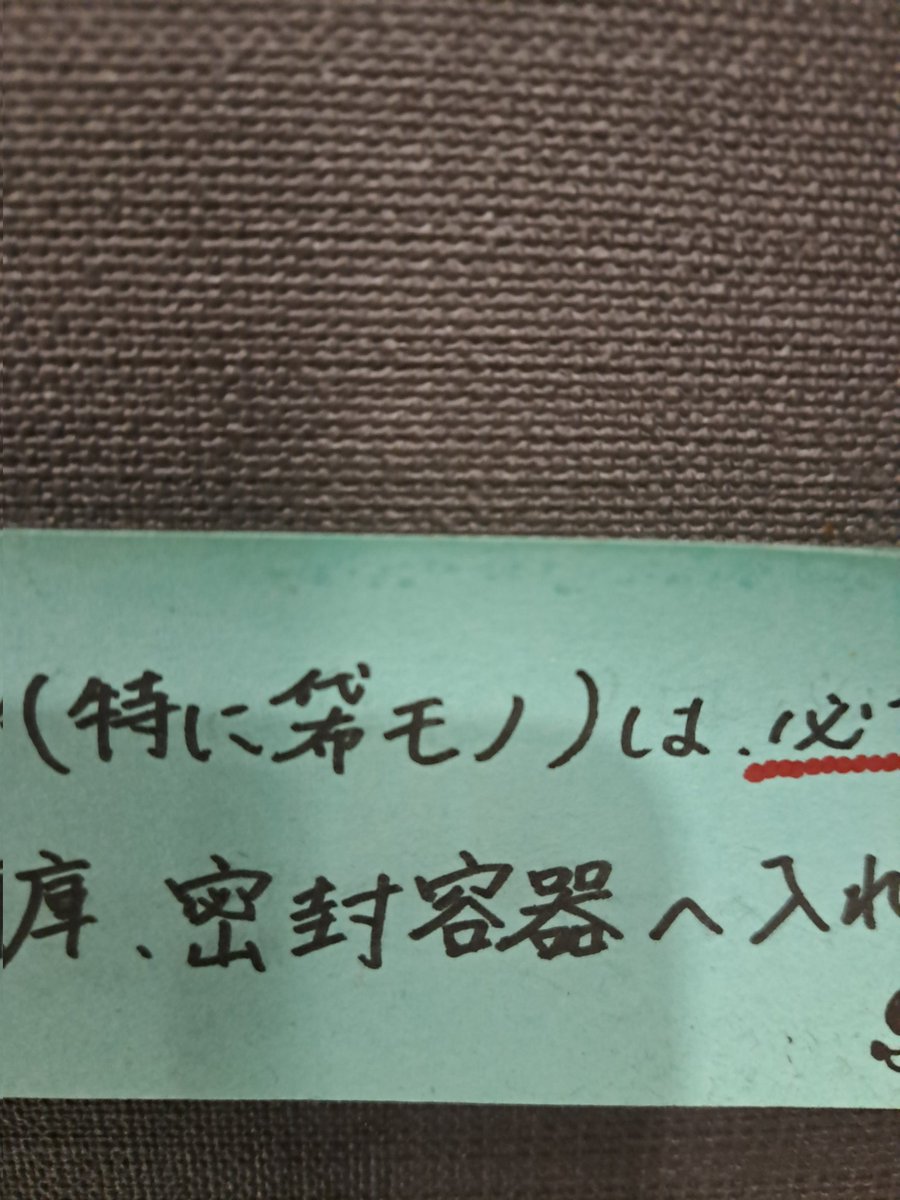 (特に袋モノ)は、必
庫、密封容器へ入れ